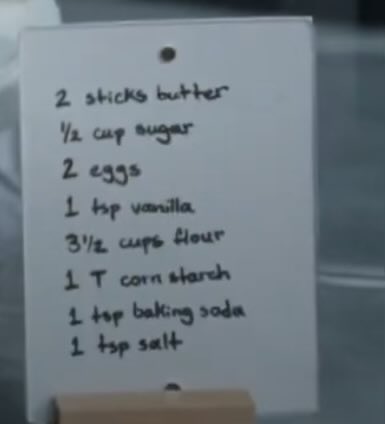 2 sticks butter
1/2 cup sugar
2 eggs
1 tsp vanilla
3 1/2 cups flour
1 T corn starch
1 tsp baking soda
1 tsp salt